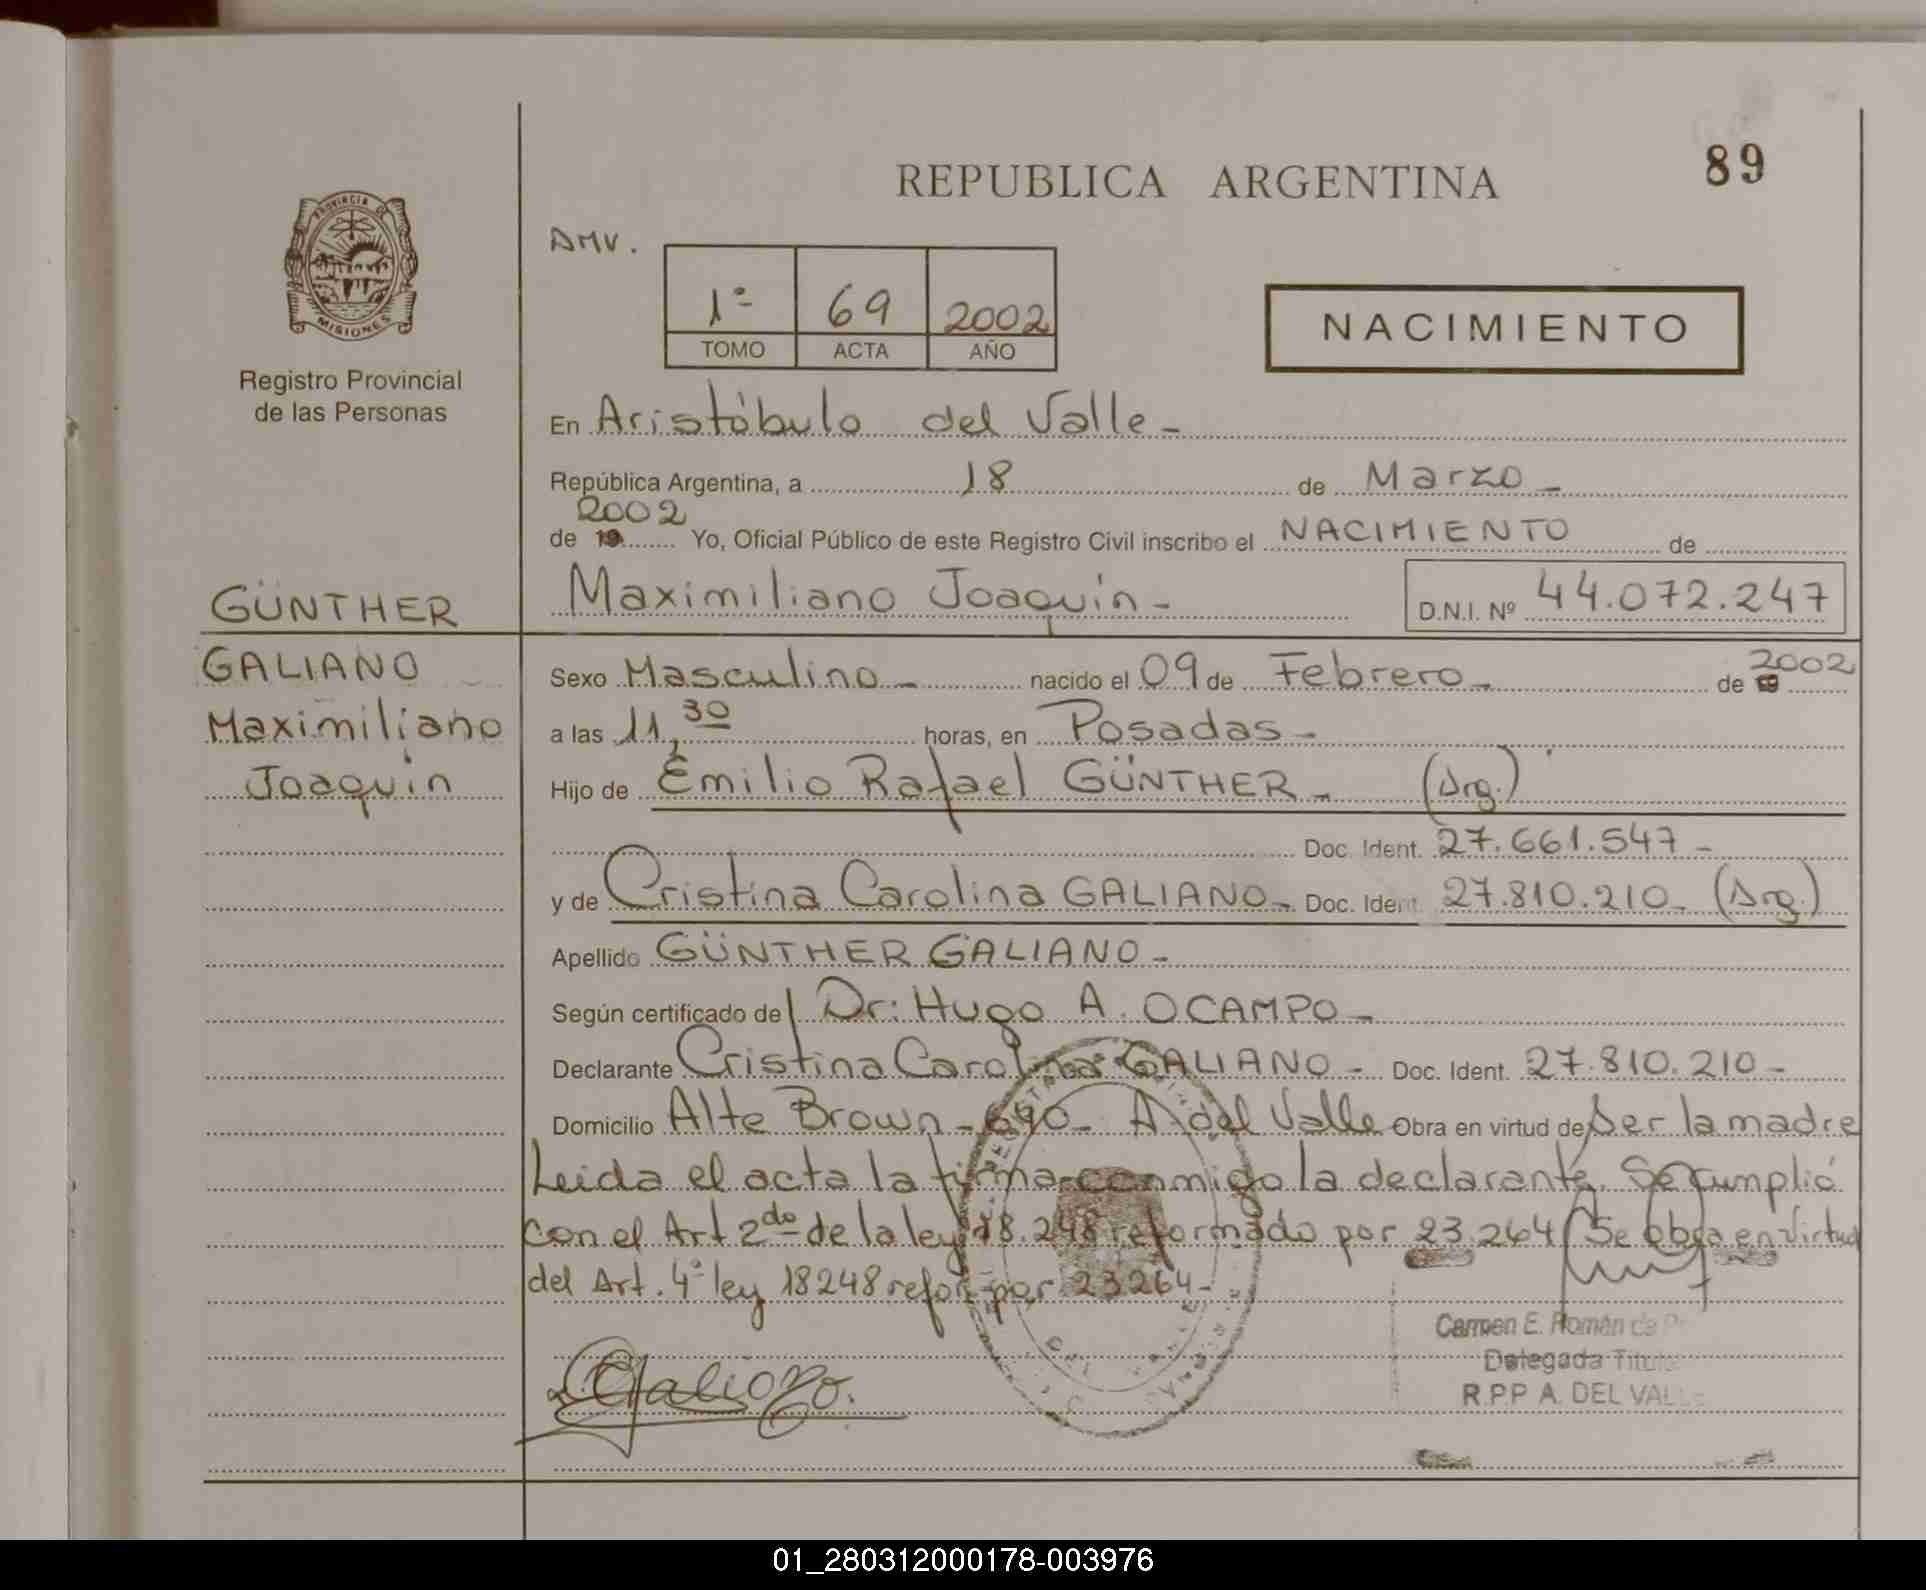 REPUBLICA ARGENTINA
89
PROVINCIA DE
MISIONES
Registro Provincial
de las Personas
AMV.
1º 69 2002
TOMO ACTA AÑO
NACIMIENTO
En Aristóbulo del Valle -
República Argentina, a 18 de Marzo -
2002
de 19 Yo, Oficial Público de este Registro Civil inscribo el NACIMIENTO de
Maximiliano Joaquín - D.N.I. Nº 44.072.247
GÜNTHER
GALIANO
Maximiliano
Joaquín
Sexo Masculino - nacido el 09 de Febrero - de 19 2002
a las 11,30 horas, en Posadas -
Hijo de Emilio Rafael GÜNTHER - (Arg.)
Doc. Ident. 27.661.547 -
y de Cristina Carolina GALIANO - Doc. Ident. 27.810.210 - (Arg.)
Apellido GÜNTHER GALIANO -
Según certificado de Dr: Hugo A. OCAMPO -
Declarante Cristina Carolina GALIANO - Doc. Ident. 27.810.210 -
Domicilio Alte Brown - 690 - A. del Valle Obra en virtud de Ser la madre
Leida el acta la firma conmigo la declarante. Se cumplió
con el Art 2do de la ley 18.248 reformado por 23.264 Se obra en virtud
del Art. 4º ley 18248 refor. por 23264 -
Galiano.
Carmen E. Román de
Delegada Titular
R.P.P A. DEL VALLE
01_280312000178-003976